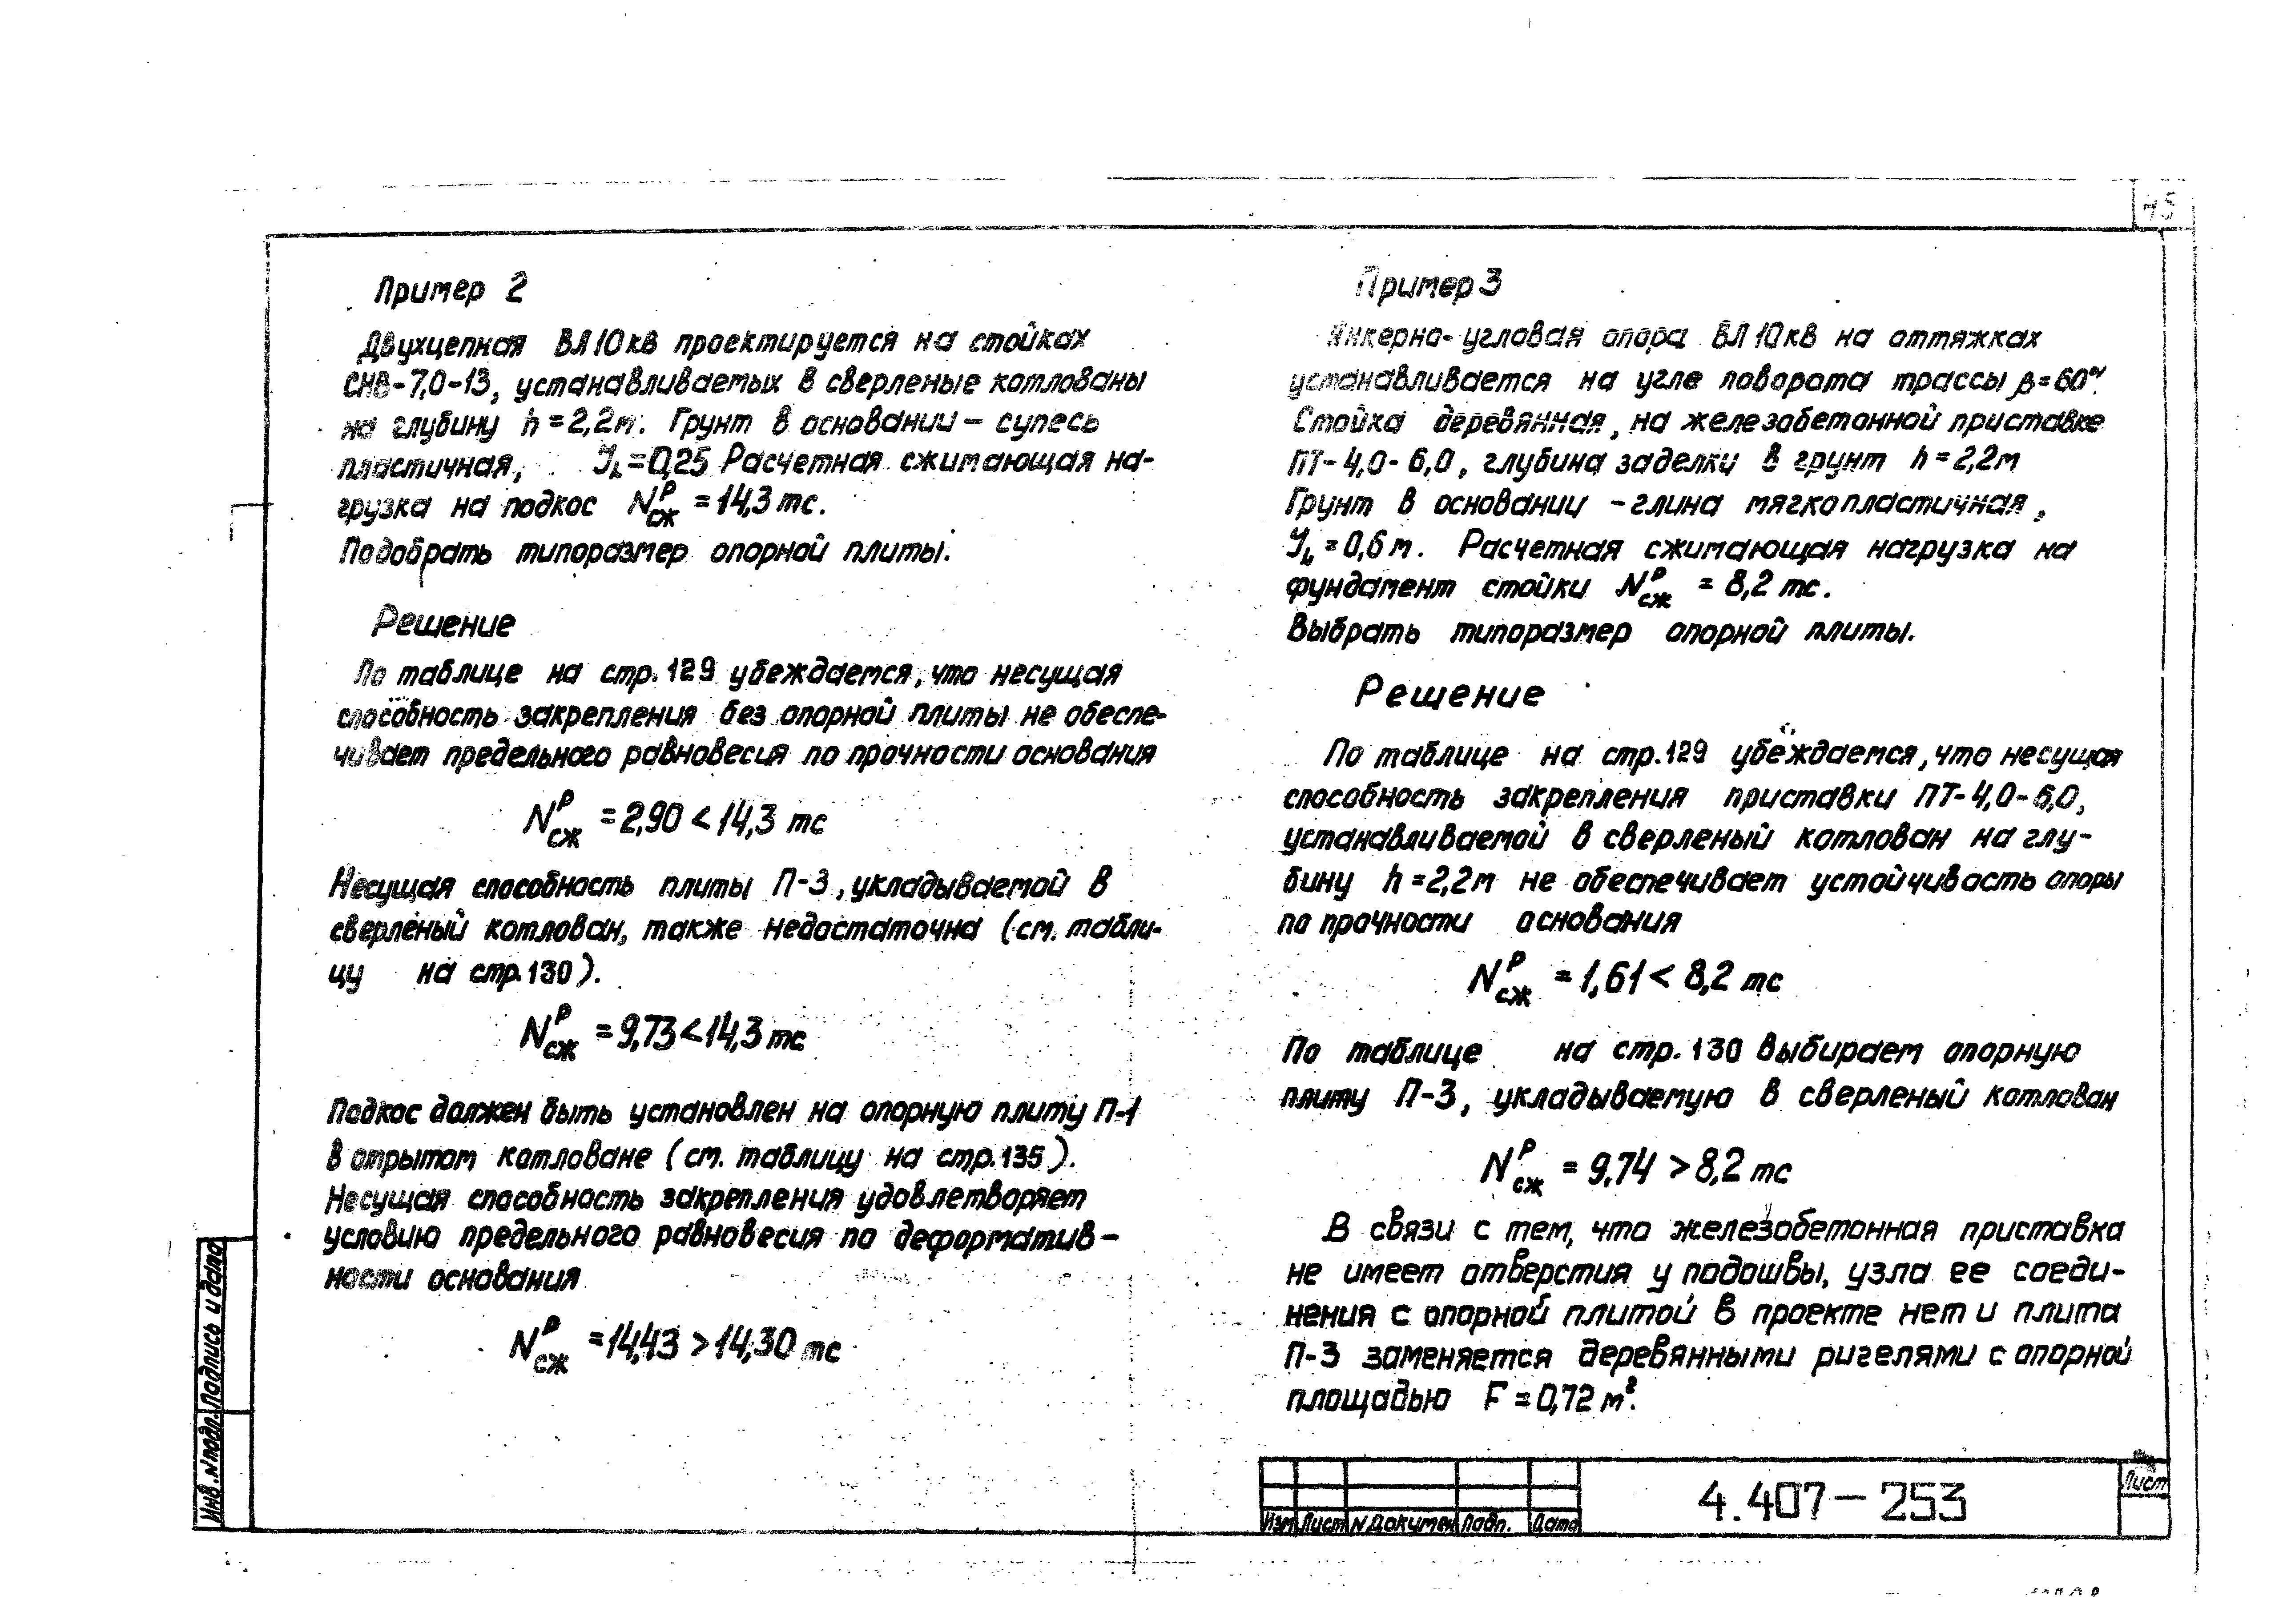 45
Пример 2
Двухцепная ВЛ 10 кВ проектируется на стойках
СНВ-7,0-13, устанавливаемых в сверленые котлованы
на глубину h = 2,2м. Грунт в основании - супесь
пластичная, J_L = 0,25 Расчетная сжимающая на-
грузка на подкос N^р_сж = 14,3 тс.
Подобрать типоразмер опорной плиты.
Решение
По таблице на стр. 129 убеждаемся, что несущая
способность закрепления без опорной плиты не обеспе-
чивает предельного равновесия по прочности основания
N^р_сж = 2,90 < 14,3 тс
Несущая способность плиты П-3, укладываемой в
сверленый котлован, также недостаточна (см. табли-
цу на стр. 130).
N^р_сж = 9,73 < 14,3 тс
Подкос должен быть установлен на опорную плиту П-1
в отрытом котловане (см. таблицу на стр. 135).
Несущая способность закрепления удовлетворяет
условию предельного равновесия по деформатив-
ности основания
N^р_сж = 14,43 > 14,30 тс
Пример 3
Анкерно-угловая опора ВЛ 10 кВ на оттяжках
устанавливается на угле поворота трассы β = 60°.
Стойка деревянная, на железобетонной приставке
ПТ-4,0-6,0, глубина заделки в грунт h = 2,2м
Грунт в основании - глина мягкопластичная,
J_L = 0,6 м. Расчетная сжимающая нагрузка на
фундамент стойки N^р_сж = 8,2 тс.
Выбрать типоразмер опорной плиты.
Решение
По таблице на стр. 129 убеждаемся, что несущая
способность закрепления приставки ПТ-4,0-6,0,
устанавливаемой в сверленый котлован на глу-
бину h = 2,2м не обеспечивает устойчивость опоры
по прочности основания
N^р_сж = 1,61 < 8,2 тс
По таблице на стр. 130 выбираем опорную
плиту П-3, укладываемую в сверленый котлован
N^р_сж = 9,74 > 8,2 тс
В связи с тем, что железобетонная приставка
не имеет отверстия у подошвы, узла ее соеди-
нения с опорной плитой в проекте нет и плита
П-3 заменяется деревянными ригелями с опорной
площадью F = 0,72 м².
Инв. N подл. Подпись и дата
Изм Лист N Докумен Подп. Дата
4.407-253
Лист